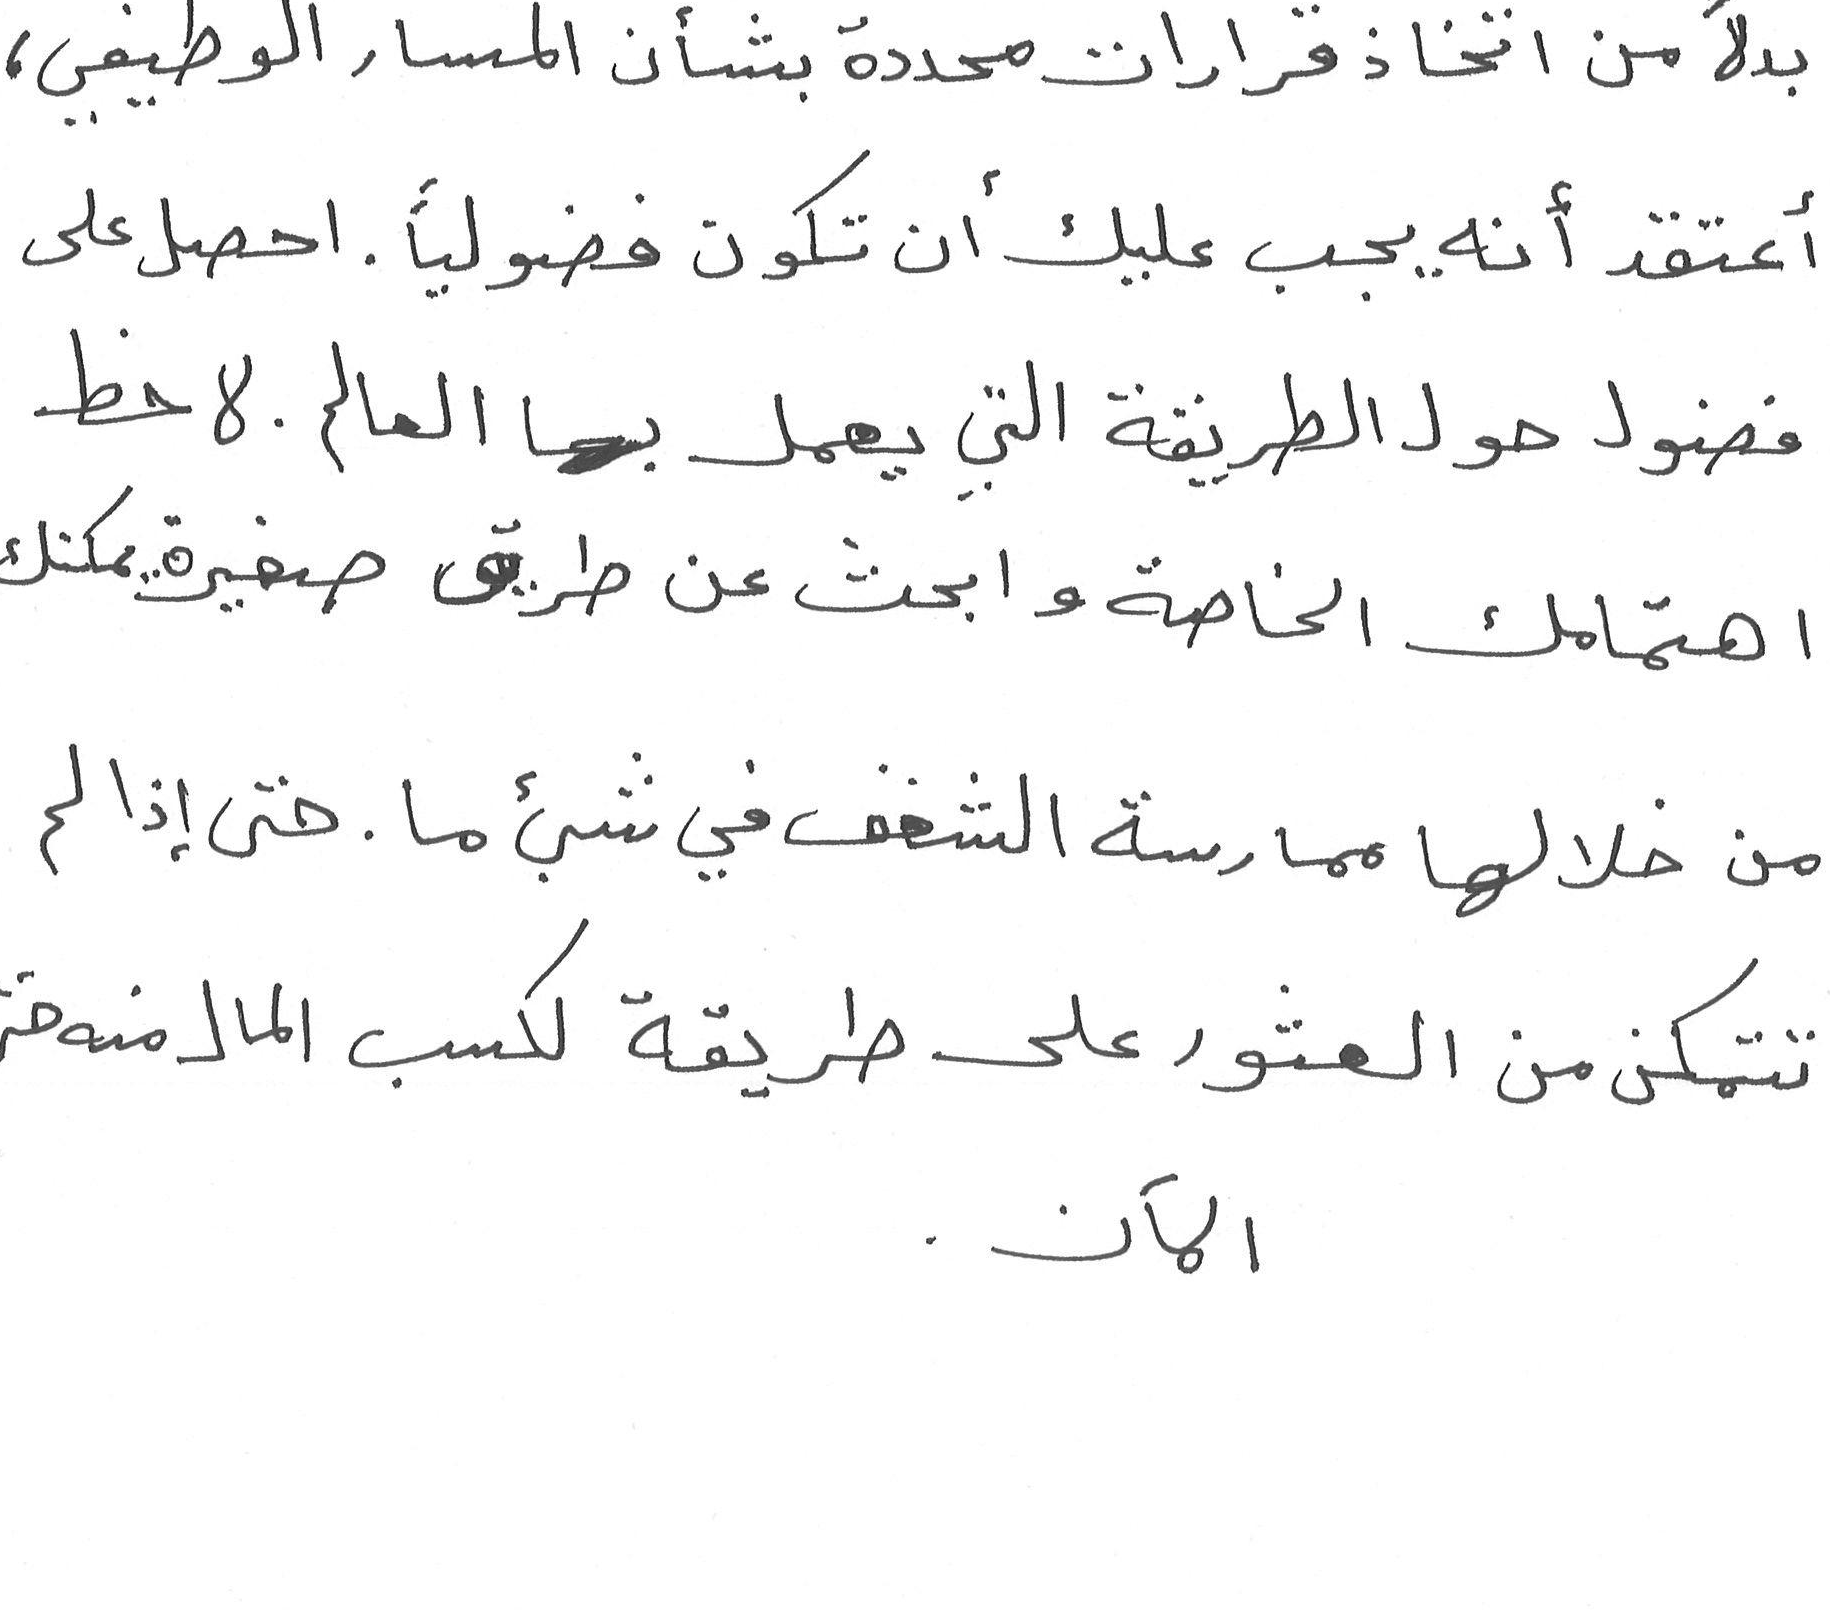 بدلاً من اتخاذ قرارات محددة بشأن المسار الوظيفي،
أعتقد أنه يجب عليك أن تكون فضولياً. احصل على
فضول حول الطريقة التي يعمل بها العالم. لاحظ
اهتمامك الخاصة وابحث عن طريق صغيرة يمكنك
من خلالها ممارسة الشغف في شيئ ما. حتى إذا لم
تتمكن من العثور على طريقة لكسب المال منه حتى
الآن.